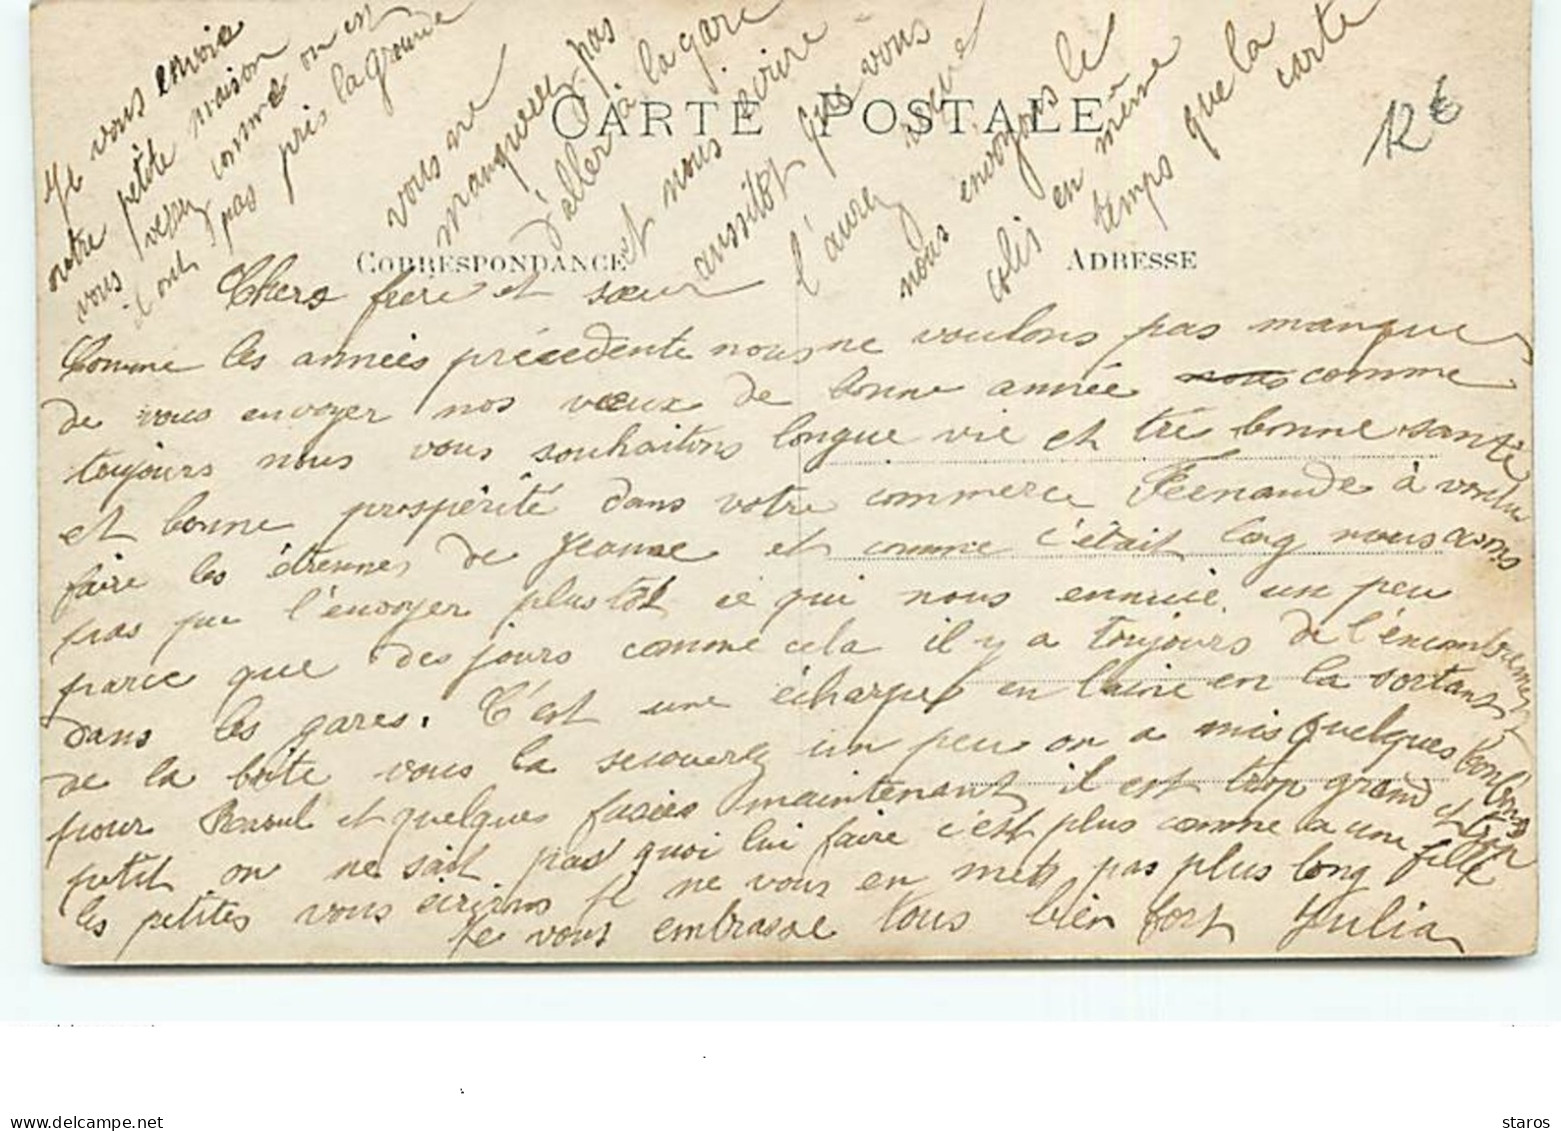 Je vous envoie
notre petite maison
vous verrez comme on est
ont pas pris la grande
vous ne
manquerez pas
d'aller à la gare
et nous écrire
aussitot que vous
l'aurez reçue
nous envoyons le
colis en même
temps que la
carte
12 €
CARTE POSTALE
CORRESPONDANCE
ADRESSE
Chers frère et sœur
Comme les années précedente nous ne voulons pas manquer
de vous envoyer nos vœux de bonne année nous comme
toujours nous vous souhaitons longue vie et trè bonne santé
et bonne prospérité dans votre commerce Fernande à voulu
faire les étrennes de Jeanne et comme c'était long nous avons
pas pu l'envoyer plus tôt ce qui nous ennuie un peu
parce que des jours comme cela il y a toujours de l'encombrement
dans les gares. C'est une écharpe en laine en la sortant
de la boîte vous la secouerez un peu on a mis quelques bonbons
pour Raoul et quelques maintenant il est trop grand et trop
petit on ne sait pas quoi lui faire c'est plus comme a une fille
les petites vous écrirons je ne vous en mets pas plus long
Je vous embrasse tous bien fort Julia
www.delcampe.net
staros